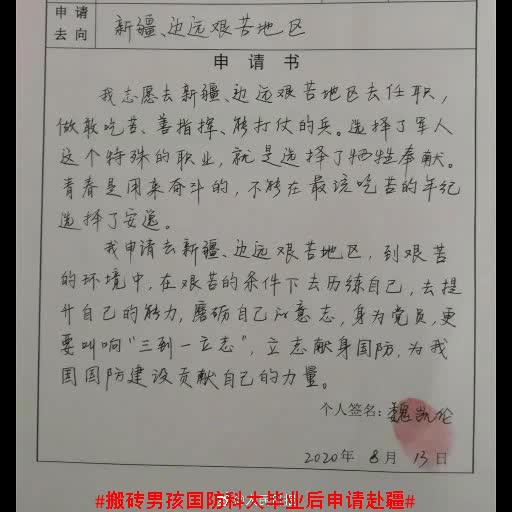 申请
去向
新疆、边远艰苦地区
申请书
我志愿去新疆、边远艰苦地区去任职,
做敢吃苦、善指挥、能打仗的兵。选择了军人
这个特殊的职业,就是选择了牺牲奉献。
青春是用来奋斗的,不能在最该吃苦的年纪
选择了安逸。
我申请去新疆、边远艰苦地区,到艰苦
的环境中,在艰苦的条件下去历练自己,去提
升自己的能力,磨砺自己的意志,身为党员,更
要叫响“三到一立志”,立志献身国防,为我
国国防建设贡献自己的力量。
个人签名:魏凯伦
2020年 8月 13日
#搬砖男孩国防科大毕业后申请赴疆#